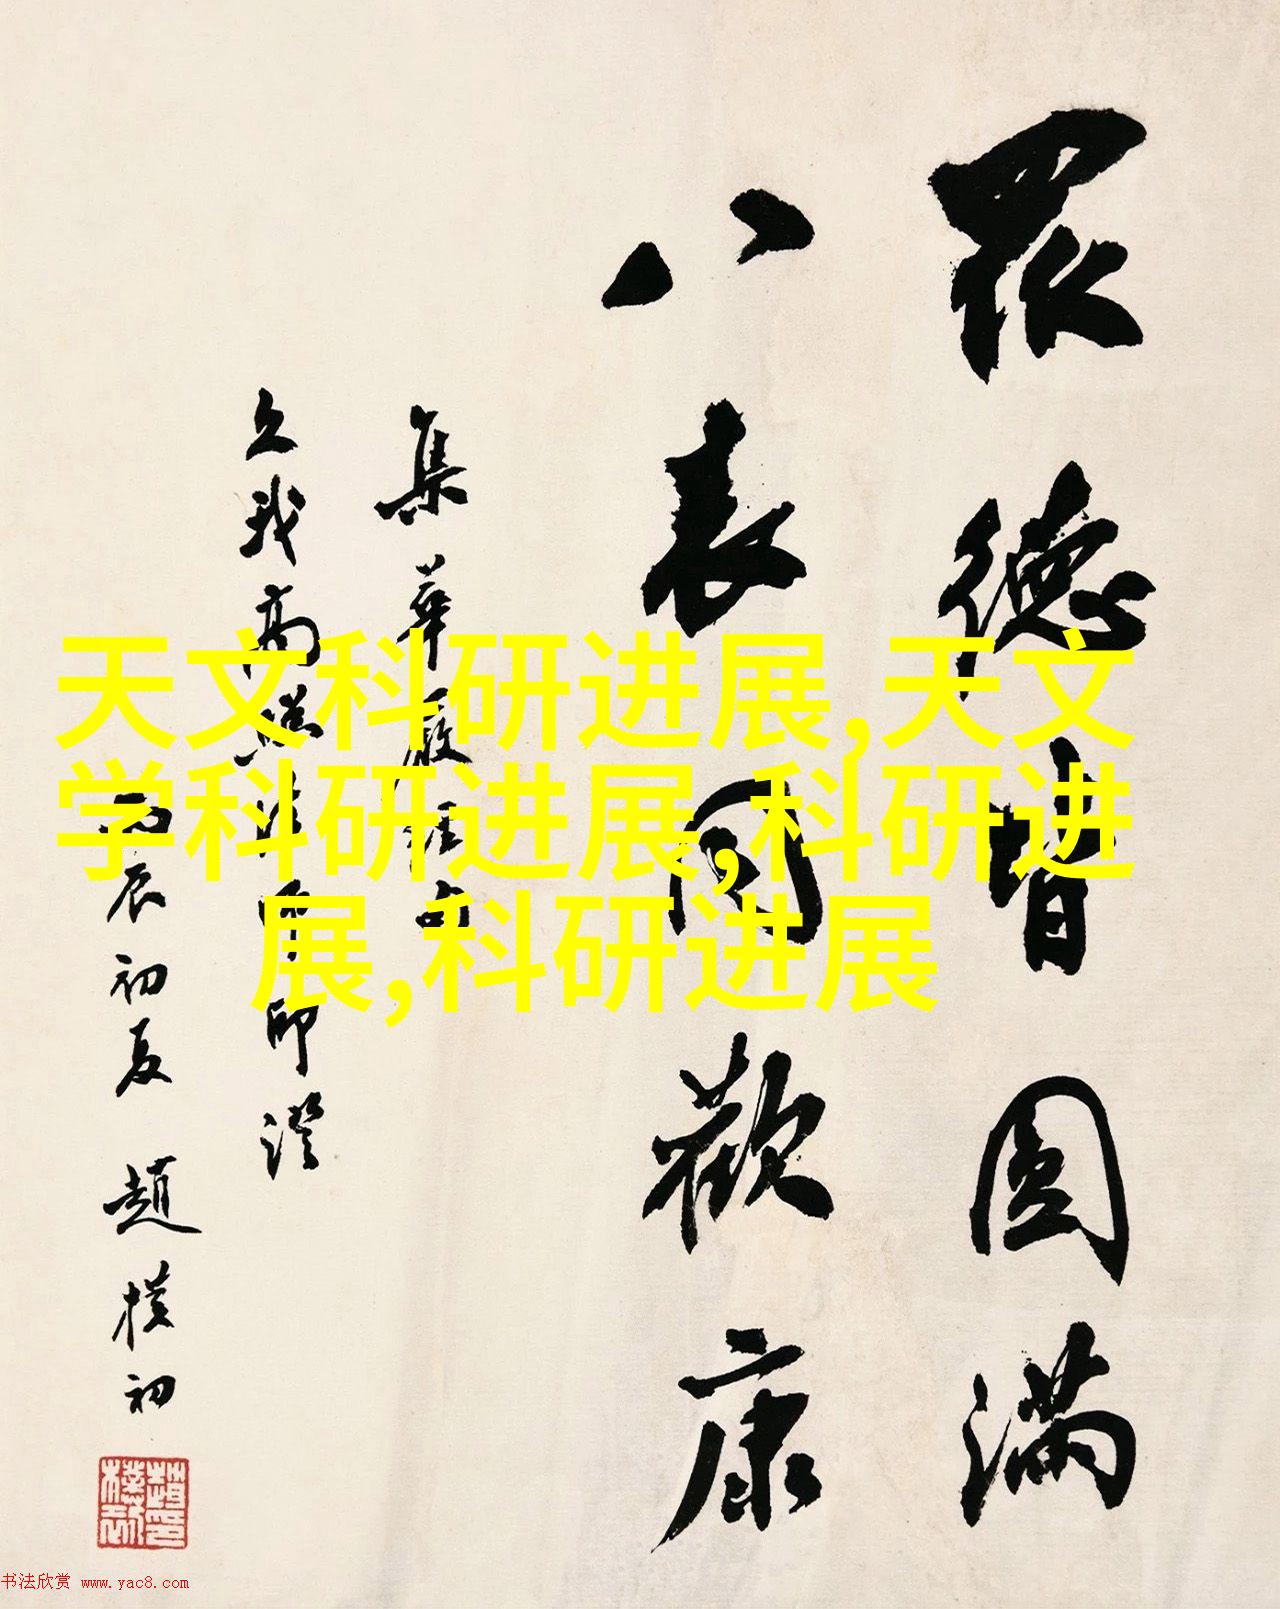 眾德皆圓滿
八表同歡康
集華嚴經句
久我高照法印證
丙辰初夏 趙樸初
天文科研进展,天文
学科研进展,科研进
展,科研进展
书法欣赏 www.yac8.com